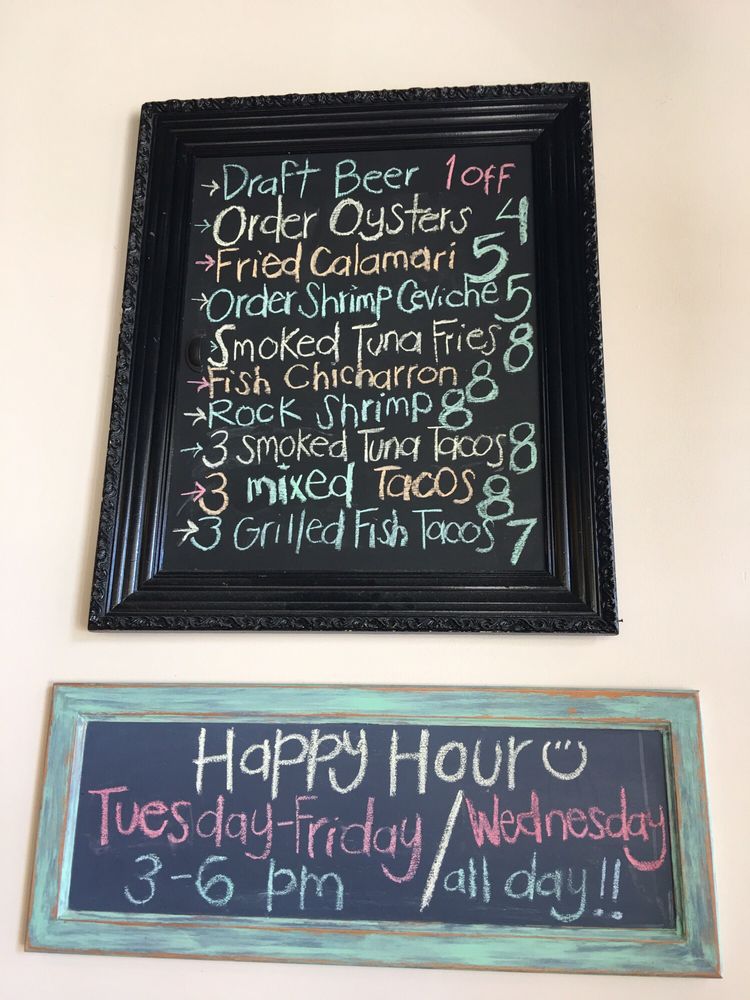 →Draft Beer 1 off
→Order Oysters 4
→Fried Calamari 5
→Order Shrimp Ceviche 5
→Smoked Tuna Fries 8
→Fish Chicharron 8
→Rock Shrimp 8
→3 smoked Tuna Tacos 8
→3 mixed Tacos 8
→3 Grilled Fish Tacos 7
Happy Hour
Tuesday-Friday / Wednesday
3-6 pm / all day!!